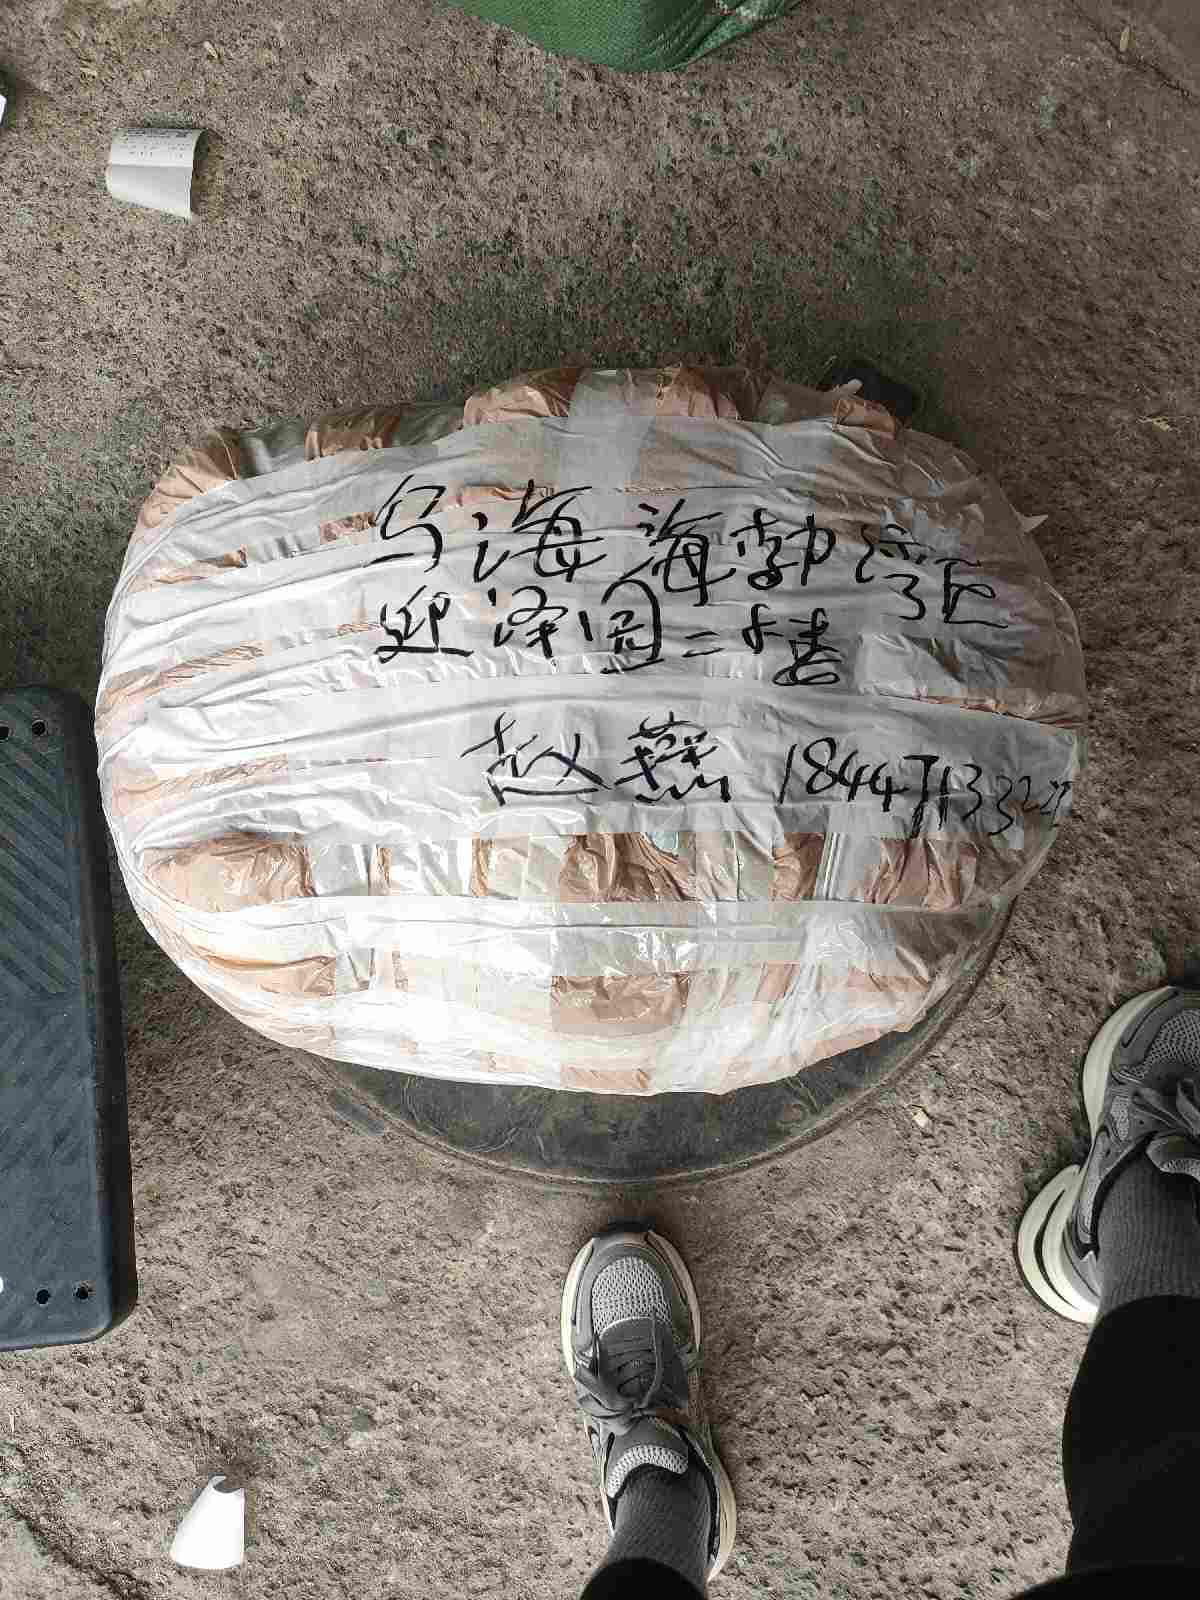 乌海 海勃湾区
迎泽园二十楼
赵燕 18447133227